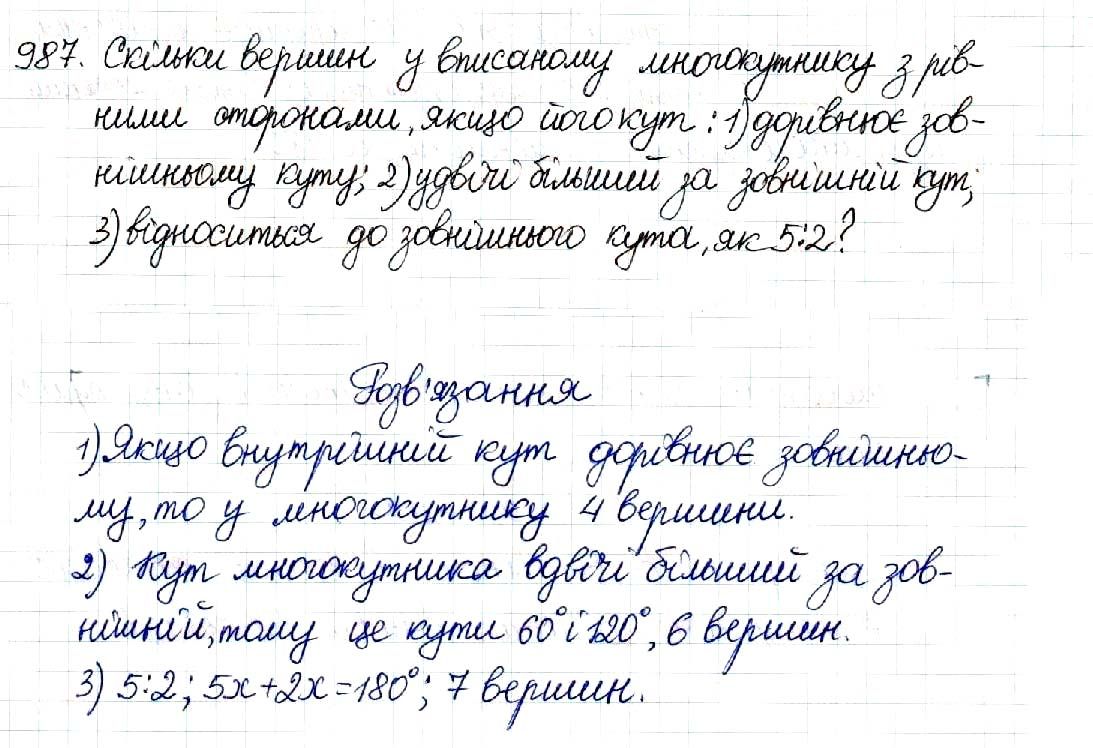 987. Скільки вершин у вписаному многокутнику з рів-
ними сторонами, якщо його кут: 1) дорівнює зов-
нішньому куту; 2) удвічі більший за зовнішній кут;
3) відноситься до зовнішнього кута, як 5:2?
Розв'язання
1) Якщо внутрішній кут дорівнює зовнішньо-
му, то у многокутнику 4 вершини.
2) Кут многокутника вдвічі більший за зов-
нішній, тому це кути 60° і 120°, 6 вершин.
3) 5:2; 5x+2x=180°; 7 вершин.